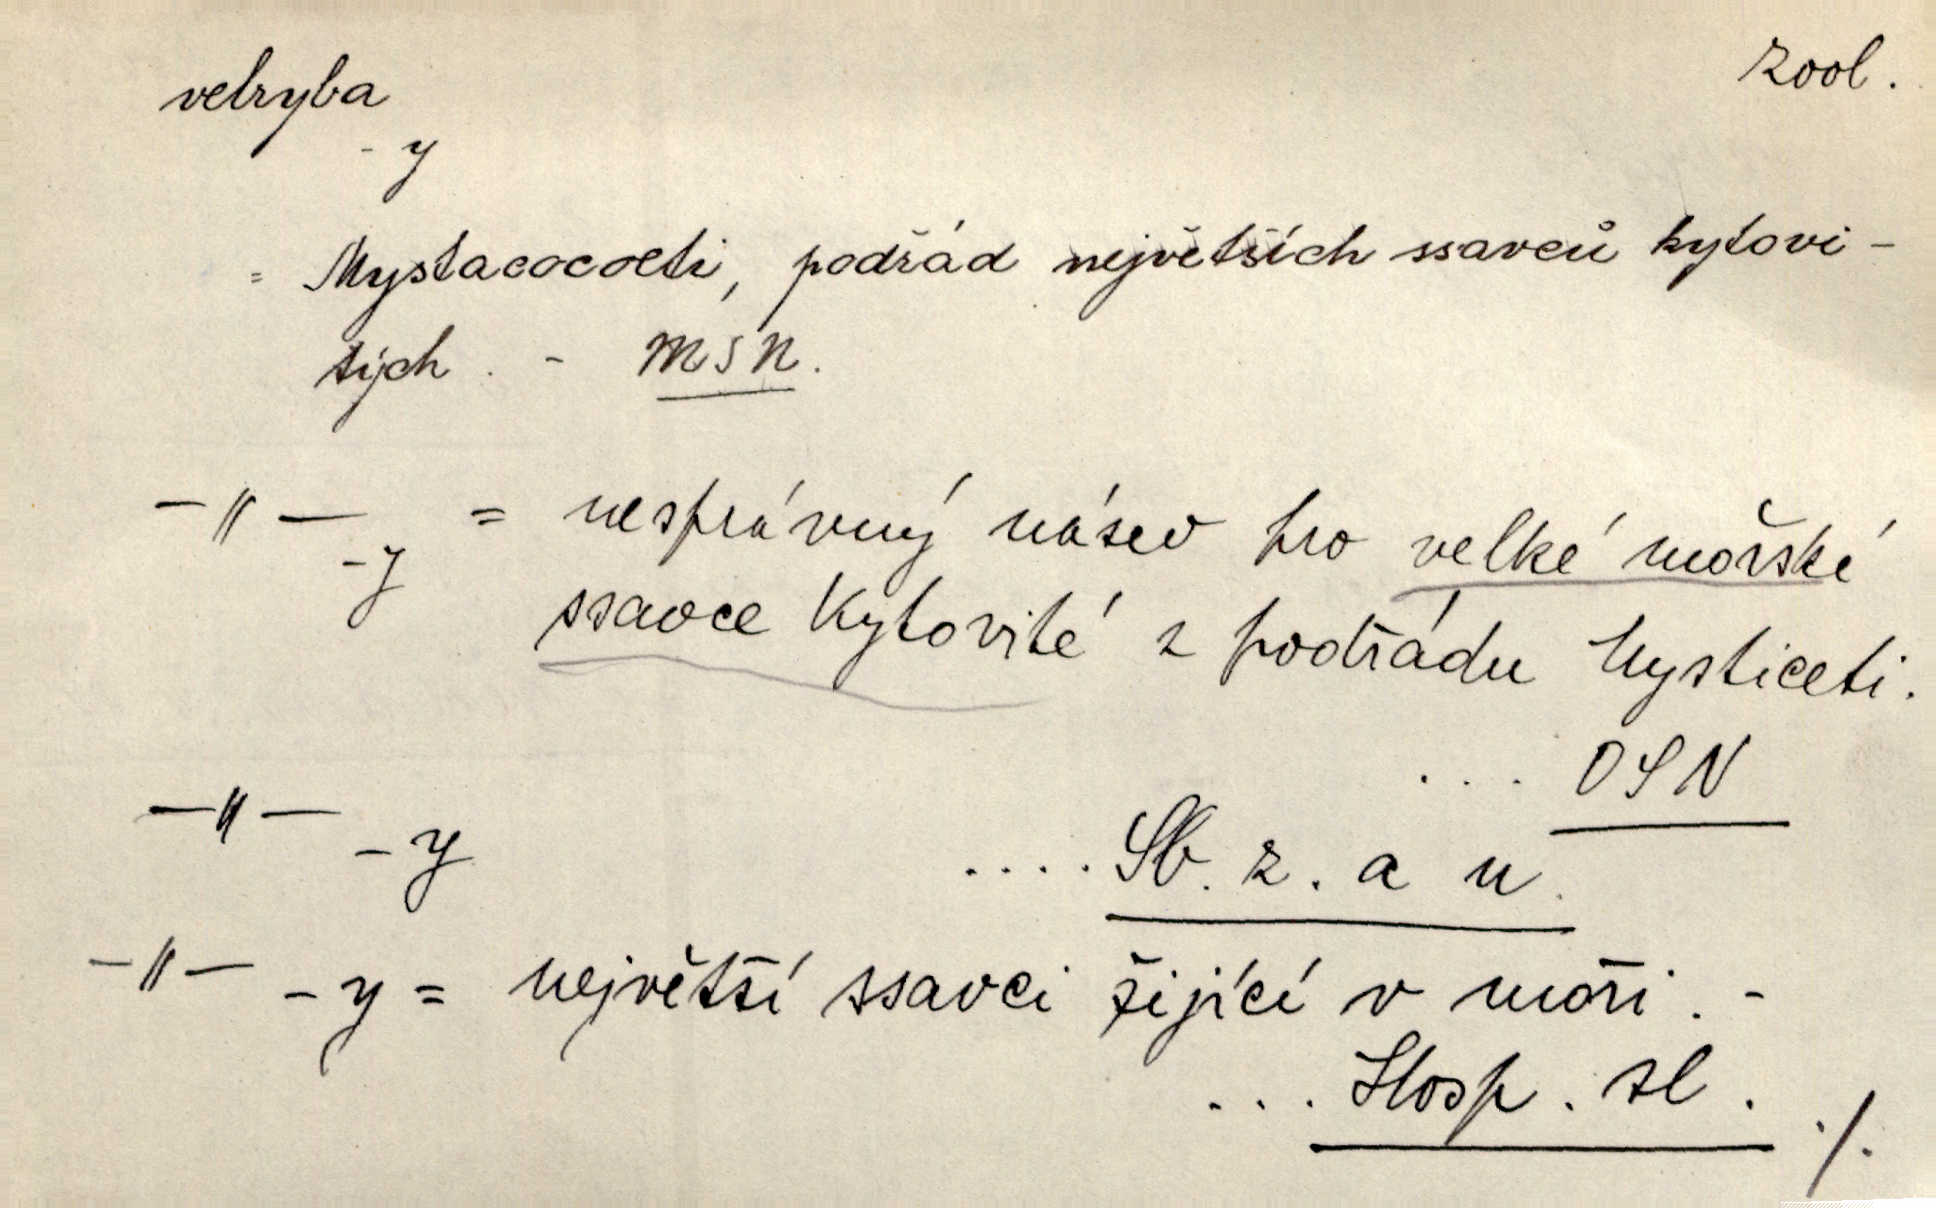 velryba zool.
- y
= Mystacoceti, podřád největších ssavců kytovi-
tých. - MSN.
-"- -y = nesprávný název pro velké mořské
ssavce Kytovité z podřádu Mysticeti.
... OSN
-"- -y .... Sb. z. a n.
-"- -y = největší ssavci žijící v moři. -
... Hosp. sl. ./.